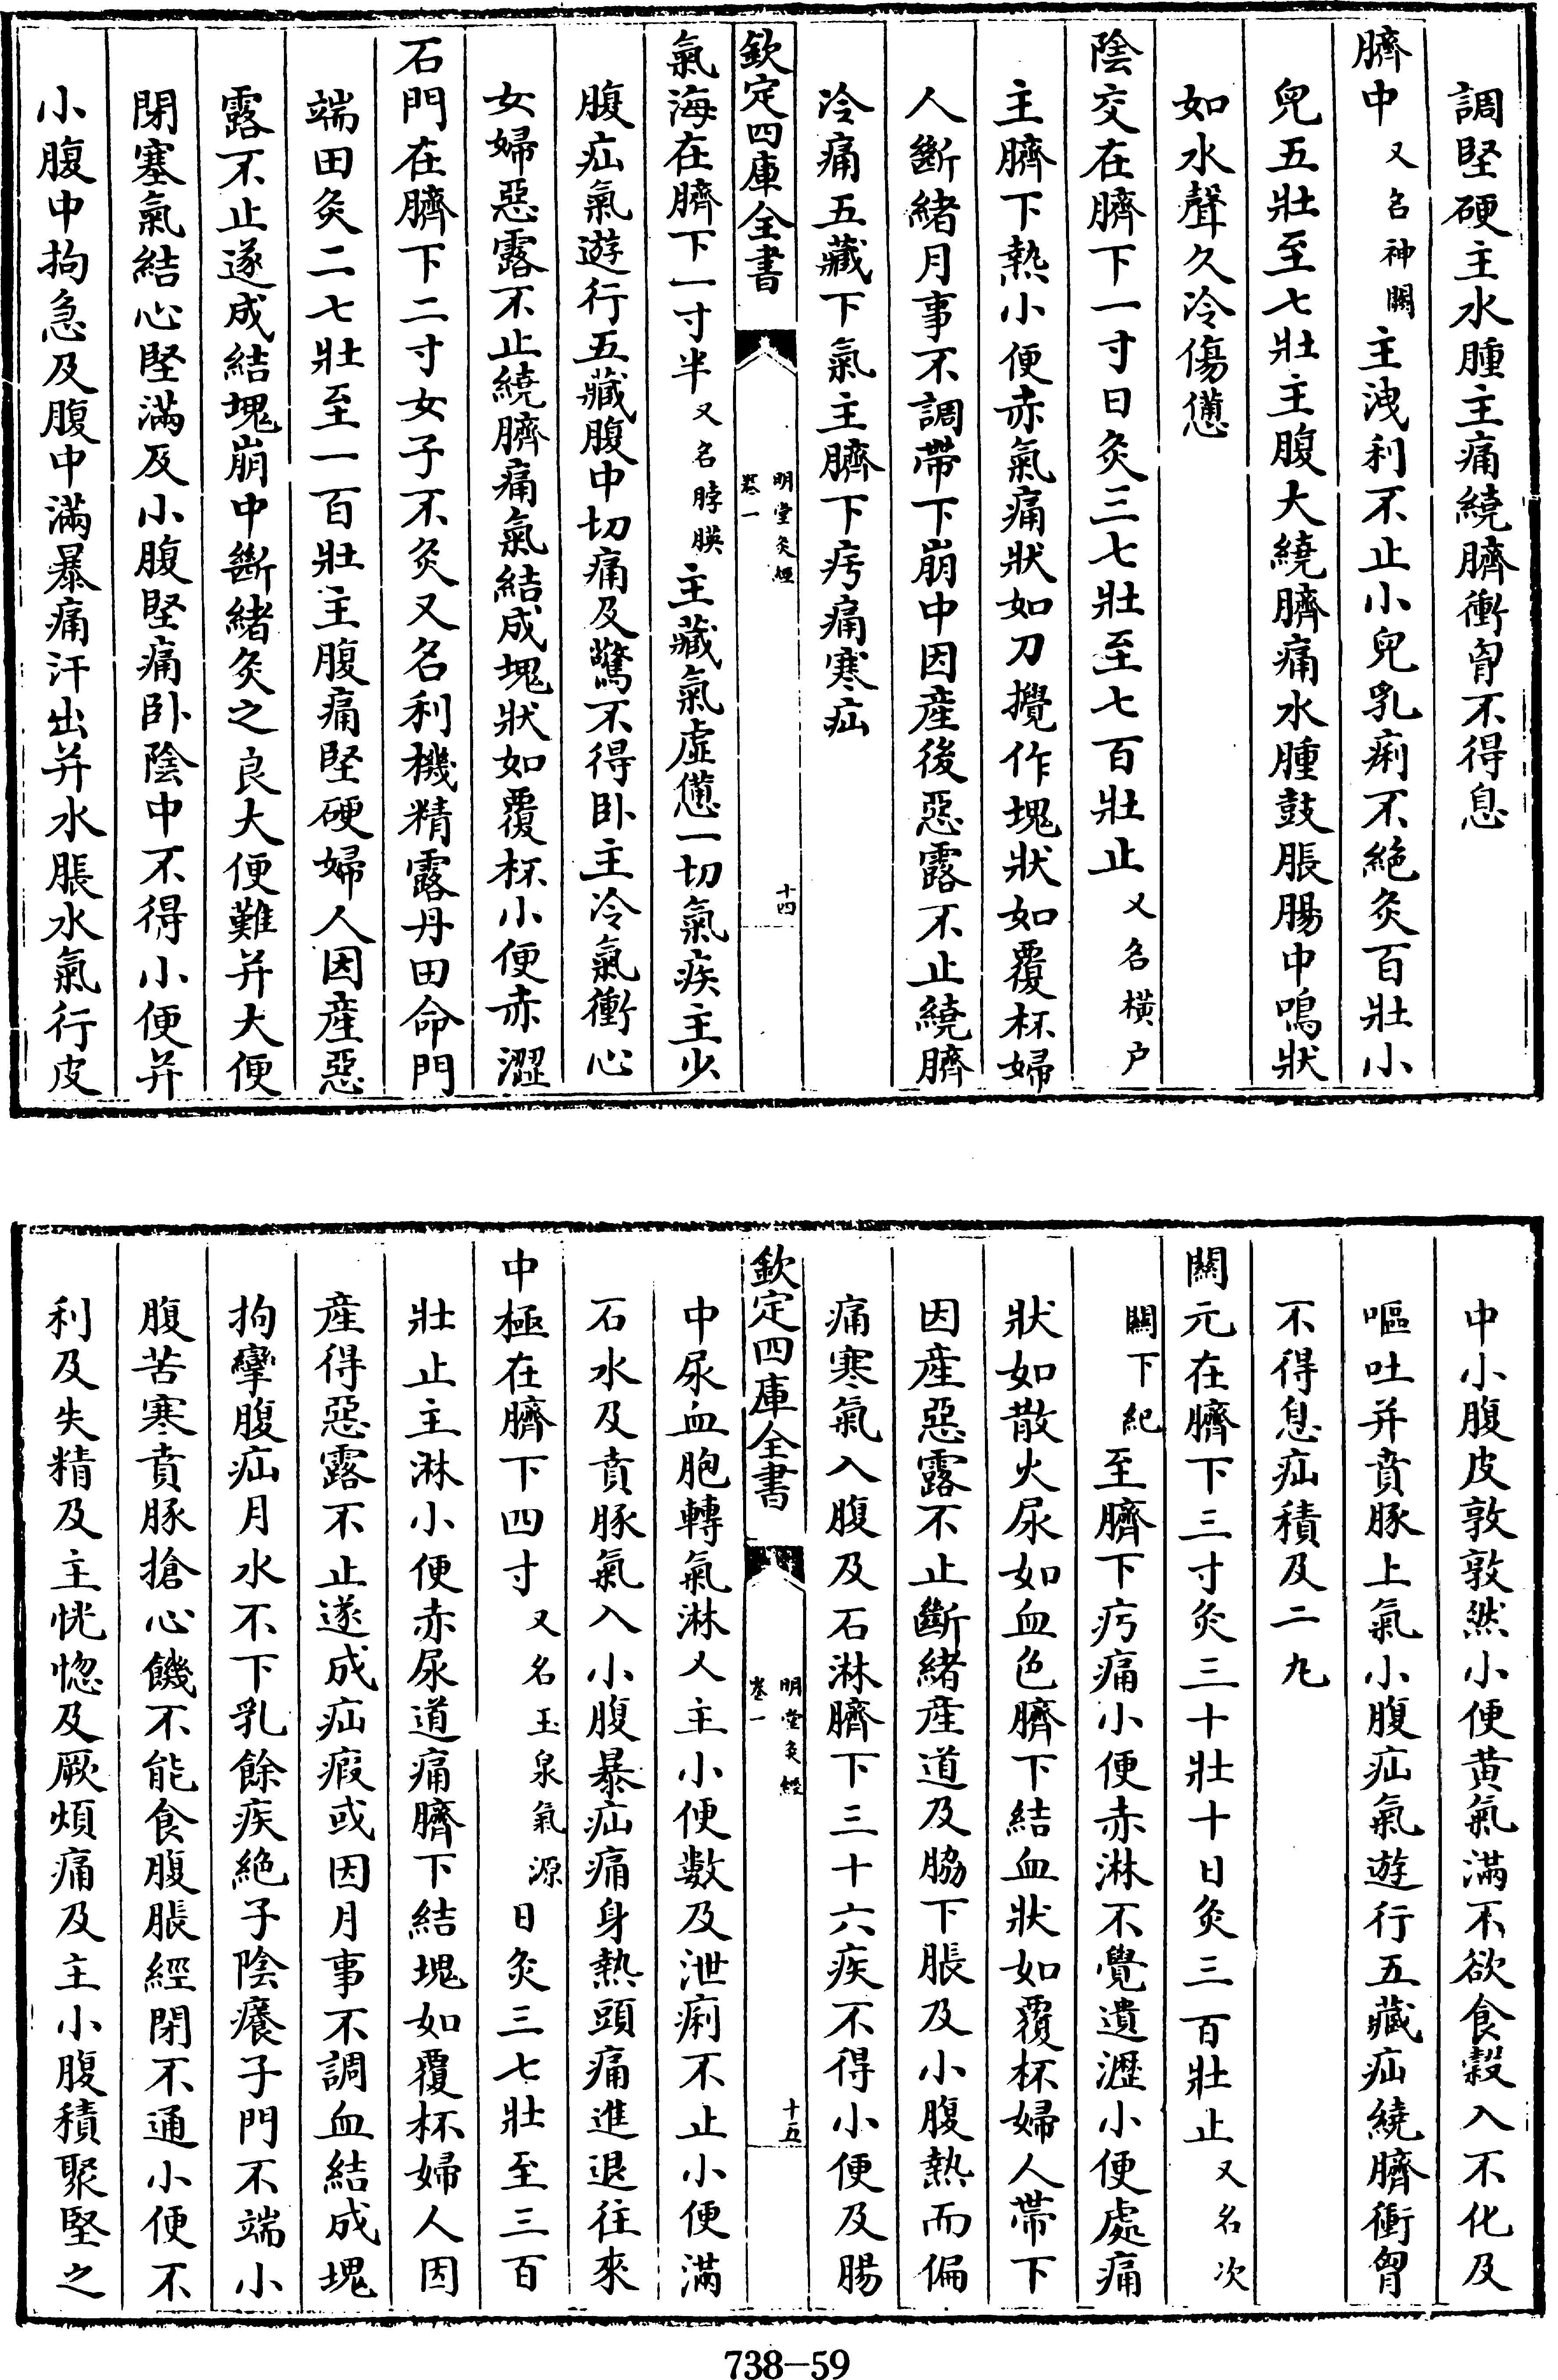 調堅硬主水腫主痛繞臍衝胷不得息
臍中又名神闕主洩利不止小兒乳痢不絶灸百壯小
兒五壯至七壯主腹大繞臍痛水腫鼓脹腸中鳴狀
如水聲久冷傷憊
陰交在臍下一寸日灸三七壯至七百壯止又名橫户
主臍下熱小便赤氣痛狀如刀攪作塊狀如覆杯婦
人斷緒月事不調帶下崩中因産後惡露不止繞臍
冷痛五藏下氣主臍下㽱痛寒疝
欽定四庫全書
明堂灸經
卷一
十四
氣海在臍下一寸半又名脖胦主藏氣虛憊一切氣疾主少
腹疝氣遊行五藏腹中切痛及驚不得卧主冷氣衝心
女婦惡露不止繞臍痛氣結成塊狀如覆杯小便赤澀
石門在臍下二寸女子不灸又名利機精露丹田命門
端田灸二七壯至一百壯主腹痛堅硬婦人因産惡
露不止遂成結塊崩中斷緒灸之良大便難并大便
閉塞氣結心堅滿及小腹堅痛卧陰中不得小便并
小腹中拘急及腹中滿暴痛汗出并水脹水氣行皮
中小腹皮敦敦然小便黄氣滿不欲食穀入不化及
嘔吐并賁豚上氣小腹疝氣遊行五藏疝繞臍衝胷
不得息疝積及二九
關元在臍下三寸灸三十壯十日灸三百壯止又名次
關下紀至臍下㽱痛小便赤淋不覺遺瀝小便處痛
狀如散火尿如血色臍下結血狀如覆杯婦人帶下
因産惡露不止斷緒産道及脇下脹及小腹熱而偏
痛寒氣入腹及石淋臍下三十六疾不得小便及腸
欽定四庫全書
明堂灸經
卷一
十五
中尿血胞轉氣淋又主小便數及泄痢不止小便滿
石水及賁豚氣入小腹暴疝痛身熱頭痛進退往來
中極在臍下四寸又名玉泉氣源日灸三七壯至三百
壯止主淋小便赤尿道痛臍下結塊如覆杯婦人因
産得惡露不止遂成疝瘕或因月事不調血結成塊
拘攣腹疝月水不下乳餘疾絶子陰癢子門不端小
腹苦寒賁豚搶心饑不能食腹脹經閉不通小便不
利及失精及主恍惚及厥煩痛及主小腹積聚堅之
738-59